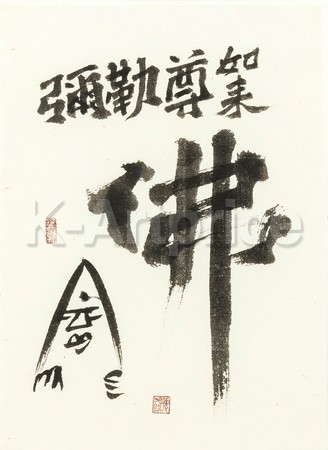 彌勒尊如来
佛
K-Artprice